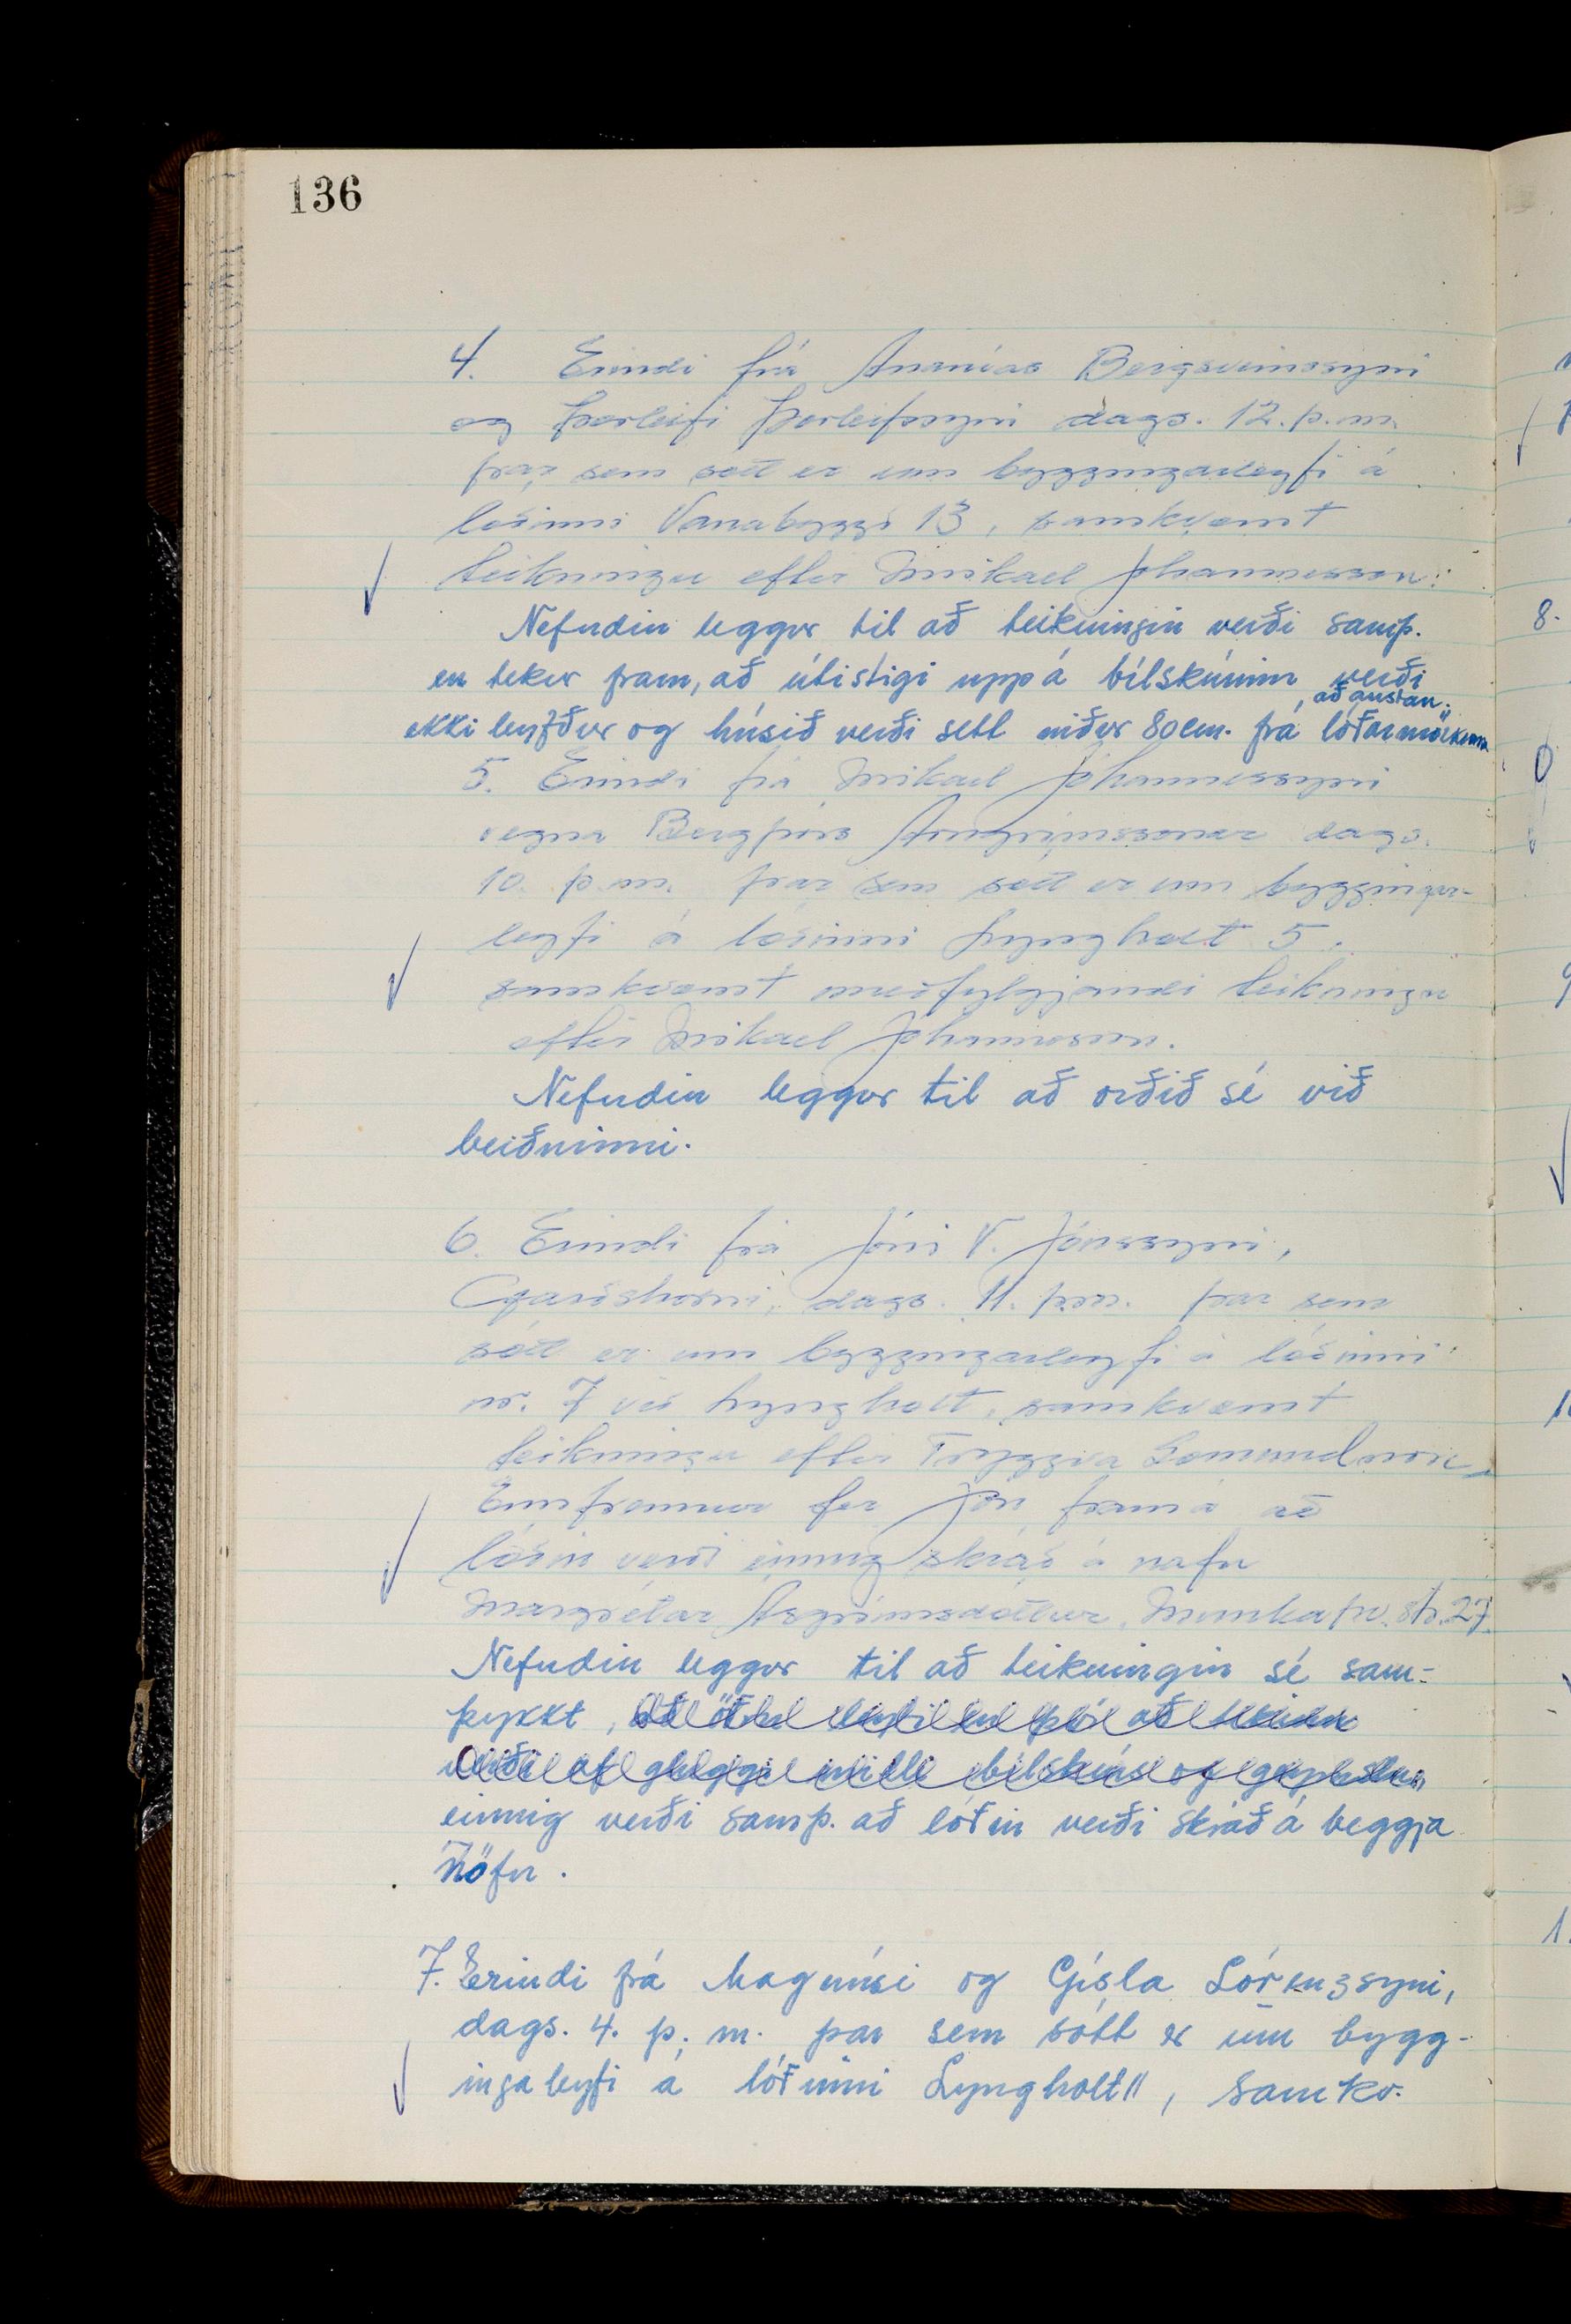 136
4. Erindi frá Ananías Bergsveinssyni
og Þorleifi Þorleifssyni dags. 12. þ.m.
þar sem sótt er um byggingarleyfi á
lóðinni Vanabyggð 13, samkvæmt
teikningu eftir Mikael Jóhannesson.
Nefndin leggur til að teikningin verði samþ.
en tekur fram, að útistigi uppá bílskúrinn verði
að austan.
ekki leyfður og húsið verði sett niður 80 cm. frá lóðarmörkum
5. Erindi frá Mikael Jóhannessyni
vegna Bergþórs Arngrímssonar dags.
10. þ.m. þar sem sótt er um byggingar-
leyfi á lóðinni Lyngholt 5,
samkvæmt meðfylgjandi teikningu
eftir Mikael Jóhannesson.
Nefndin leggur til að orðið sé við
beiðninni.
6. Erindi frá Jóni V. Jónssyni,
Garðshorni, dags. 11. þ.m. þar sem
sótt er um byggingarleyfi á lóðinni
nr. 7 við Lyngholt, samkvæmt
teikningu eftir Tryggva Sæmundsson.
Ennfremur fer Jón framá að
lóðin verði einnig skráð á nafn
Margrétar Ásgrímsdóttur, Munkaþv.str. 27.
Nefndin leggur til að teikningin sé sam-
þykkt,
verði af glugga milli bílskúrs og
einnig verði samþ. að lóðin verði skráð á beggja
nöfn.
7. Erindi frá Magnúsi og Gísla Lórenzsyni,
dags. 4. þ.m. þar sem sótt er um bygg-
ingaleyfi á lóðinni Lyngholt 11, samkv.